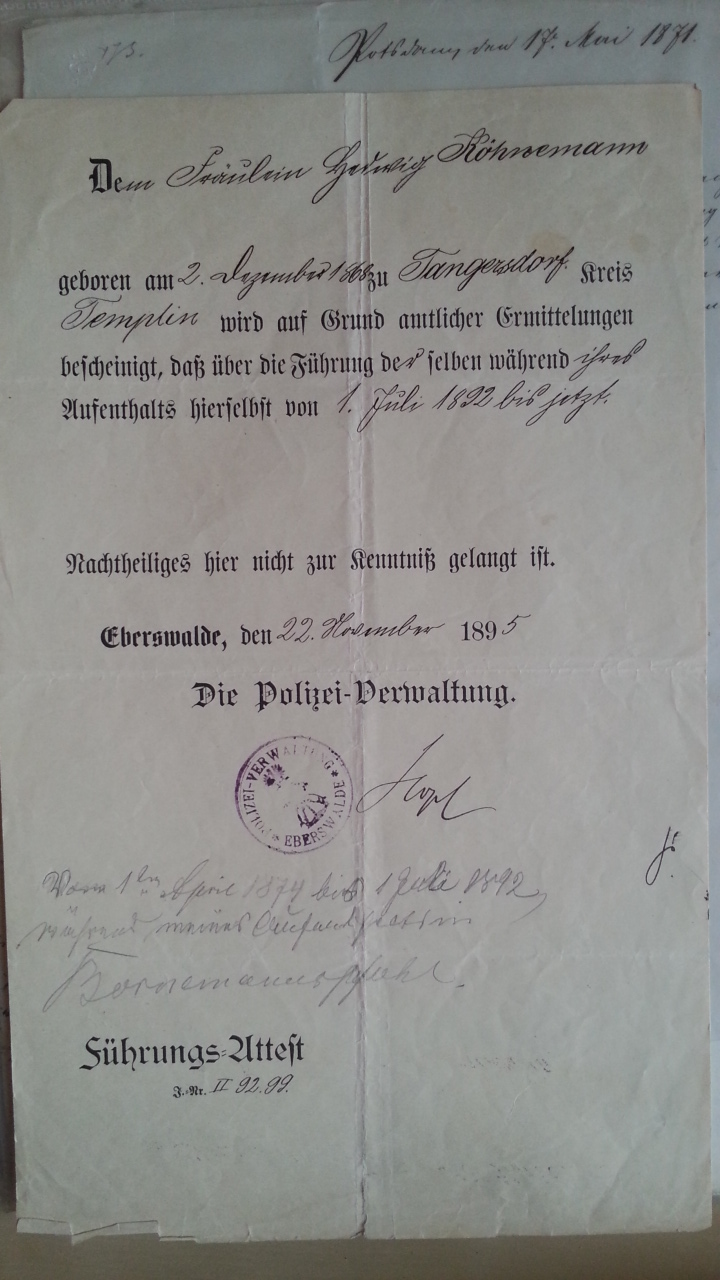 173.
Potsdam, den 17t Mai 1871.
Dem Fräulein Hedwig Köhnemann
geboren am 2. Dezember 1868 zu Tangersdorf. Kreis
Templin wird auf Grund amtlicher Ermittelungen
bescheinigt, daß über die Führung der selben während ihres
Aufenthalts hierselbst von 1. Juli 1892 bis jetzt.
Nachtheiliges hier nicht zur Kenntniß gelangt ist.
Eberswalde, den 22. November 1895
Die Polizei-Verwaltung.
POLIZEI-VERWALTUNG * EBERSWALDE *
Vom 1ten April 1874 bis 1 Juli 1892
während meines Aufenthalts in
Bornemannspfuhl.
Führungs-Attest
J.-Nr. II 92.99.